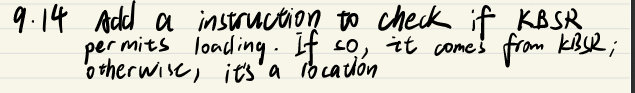 9.14 Add a instruction to check if KBSR
permits loading. If so, it comes from KBSR;
otherwise, it's a location